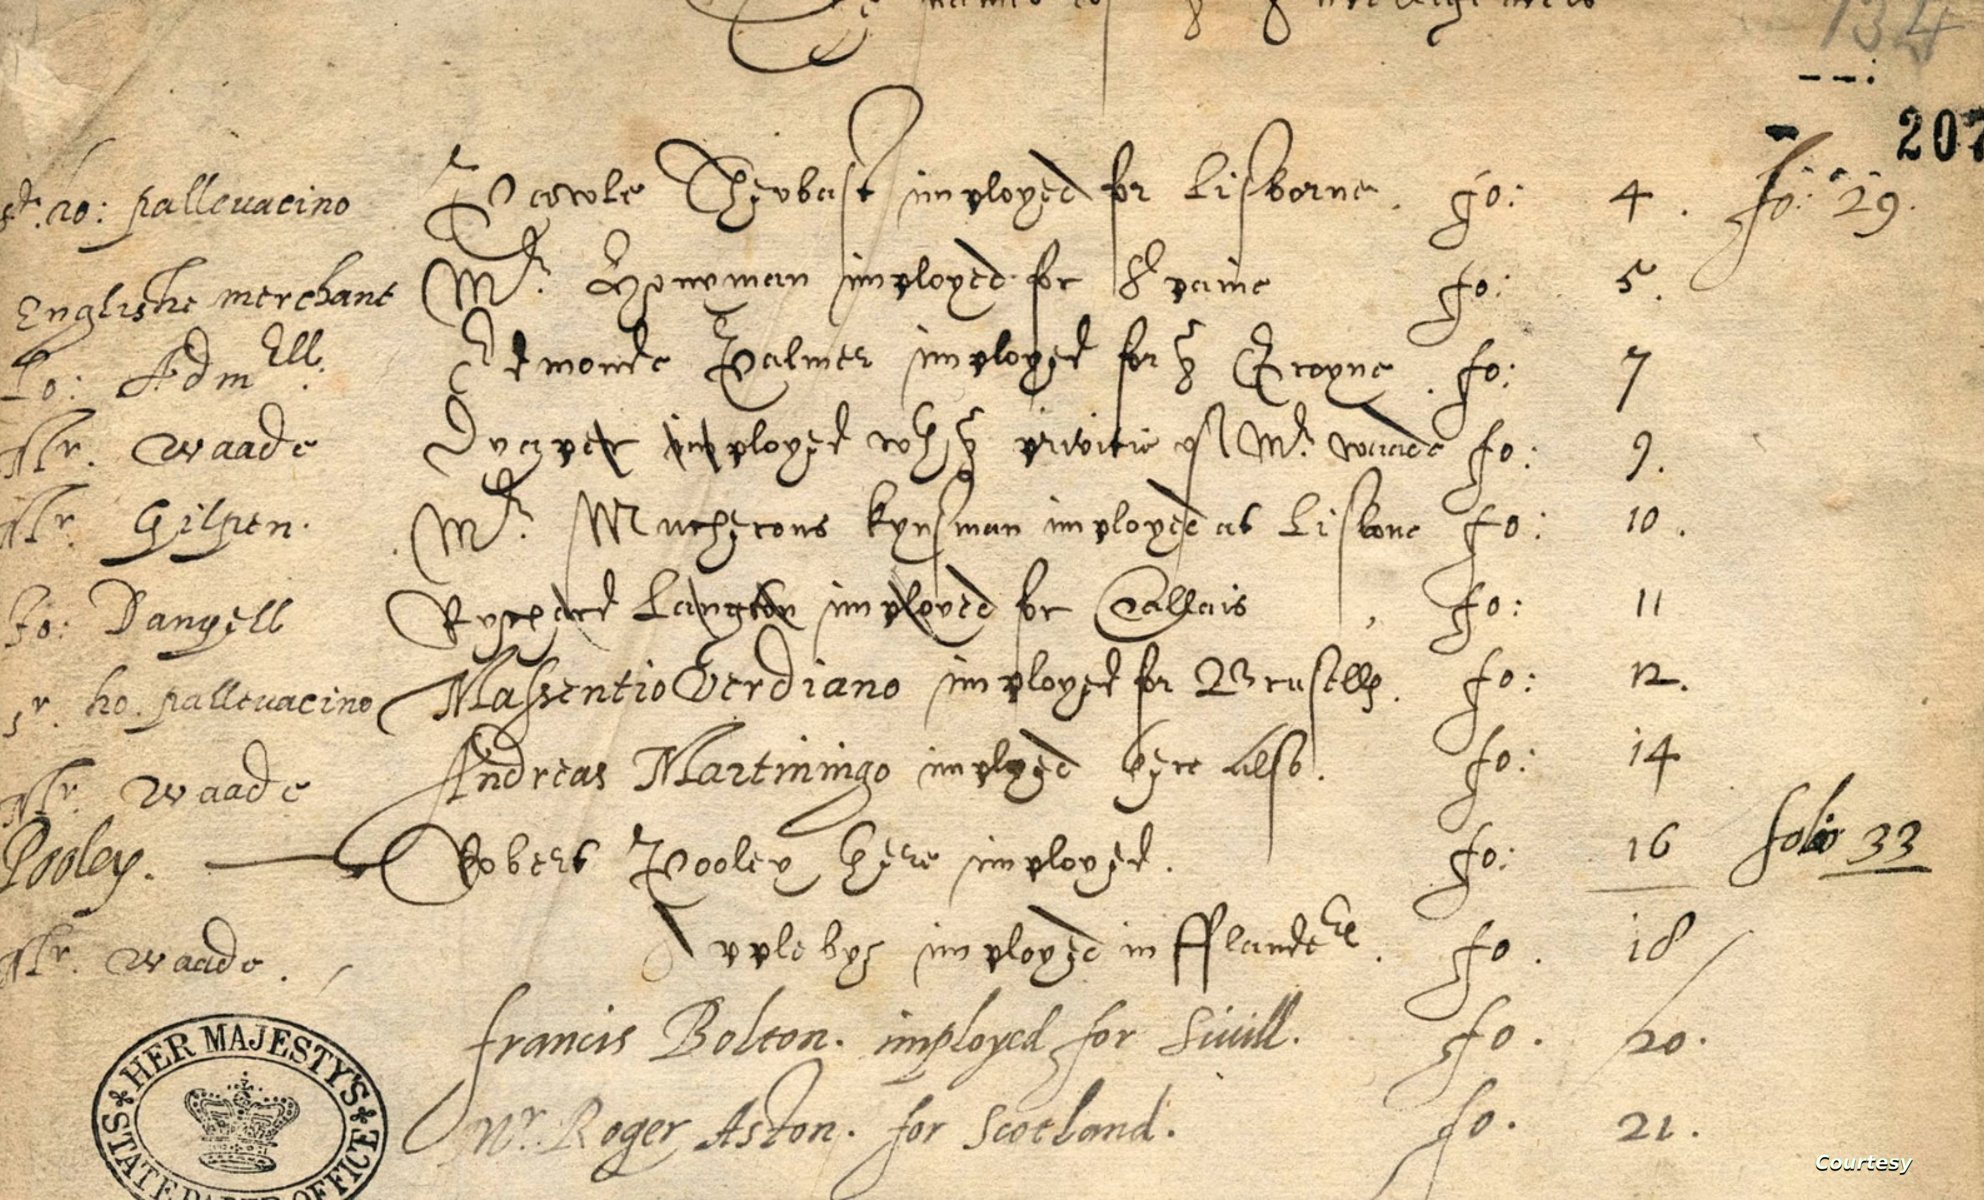 The names of ye Intelligencers
134
207
Sr. Ho: Pallevacino Pawle Thevbast imployed for Lisborne. fo: 4. fo: 29.
Englishe merchant Mr. Honyman imployed for Spaine fo: 5.
Lo: Admell. Edmonde Palmer imployed for ye Groyne. fo: 7
Mr. Waade Draper imployed wth ye privitie of Mr. Waade fo: 9.
Mr. Gilpen. Mr. Mucherons kynsman imployed at Lisbone fo: 10.
Jo: Danyell Rychard Langton imployed for Callais, fo: 11
Sr. Ho. Pallevacino Massentio Verdiano imployed for Brusells. fo: 12.
Mr. Waade Andreas Martiningo imployed here also. fo: 14
Pooley. Robert Pooley here imployed. fo: 16 folio 33
Mr. Waade. Applebye imployed in fflanders. fo. 18
francis Bolton. imployed for Sivill. fo. 20.
Mr. Roger Aston. for Scotland. fo. 21.
HER MAJESTY'S STATE PAPER OFFICE
Courtesy